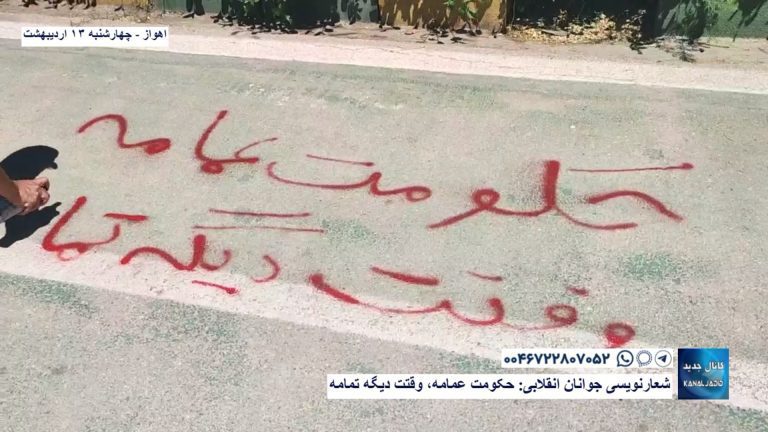 اهواز - چهارشنبه ۱۳ اردیبهشت
حکومت عمامه
وقتت دیگه تما
۰۰۴۶۷۲۲۸۰۷۰۵۲
شعارنویسی جوانان انقلابی: حکومت عمامه، وقتت دیگه تمامه
کانال جدید
KANAL JADID